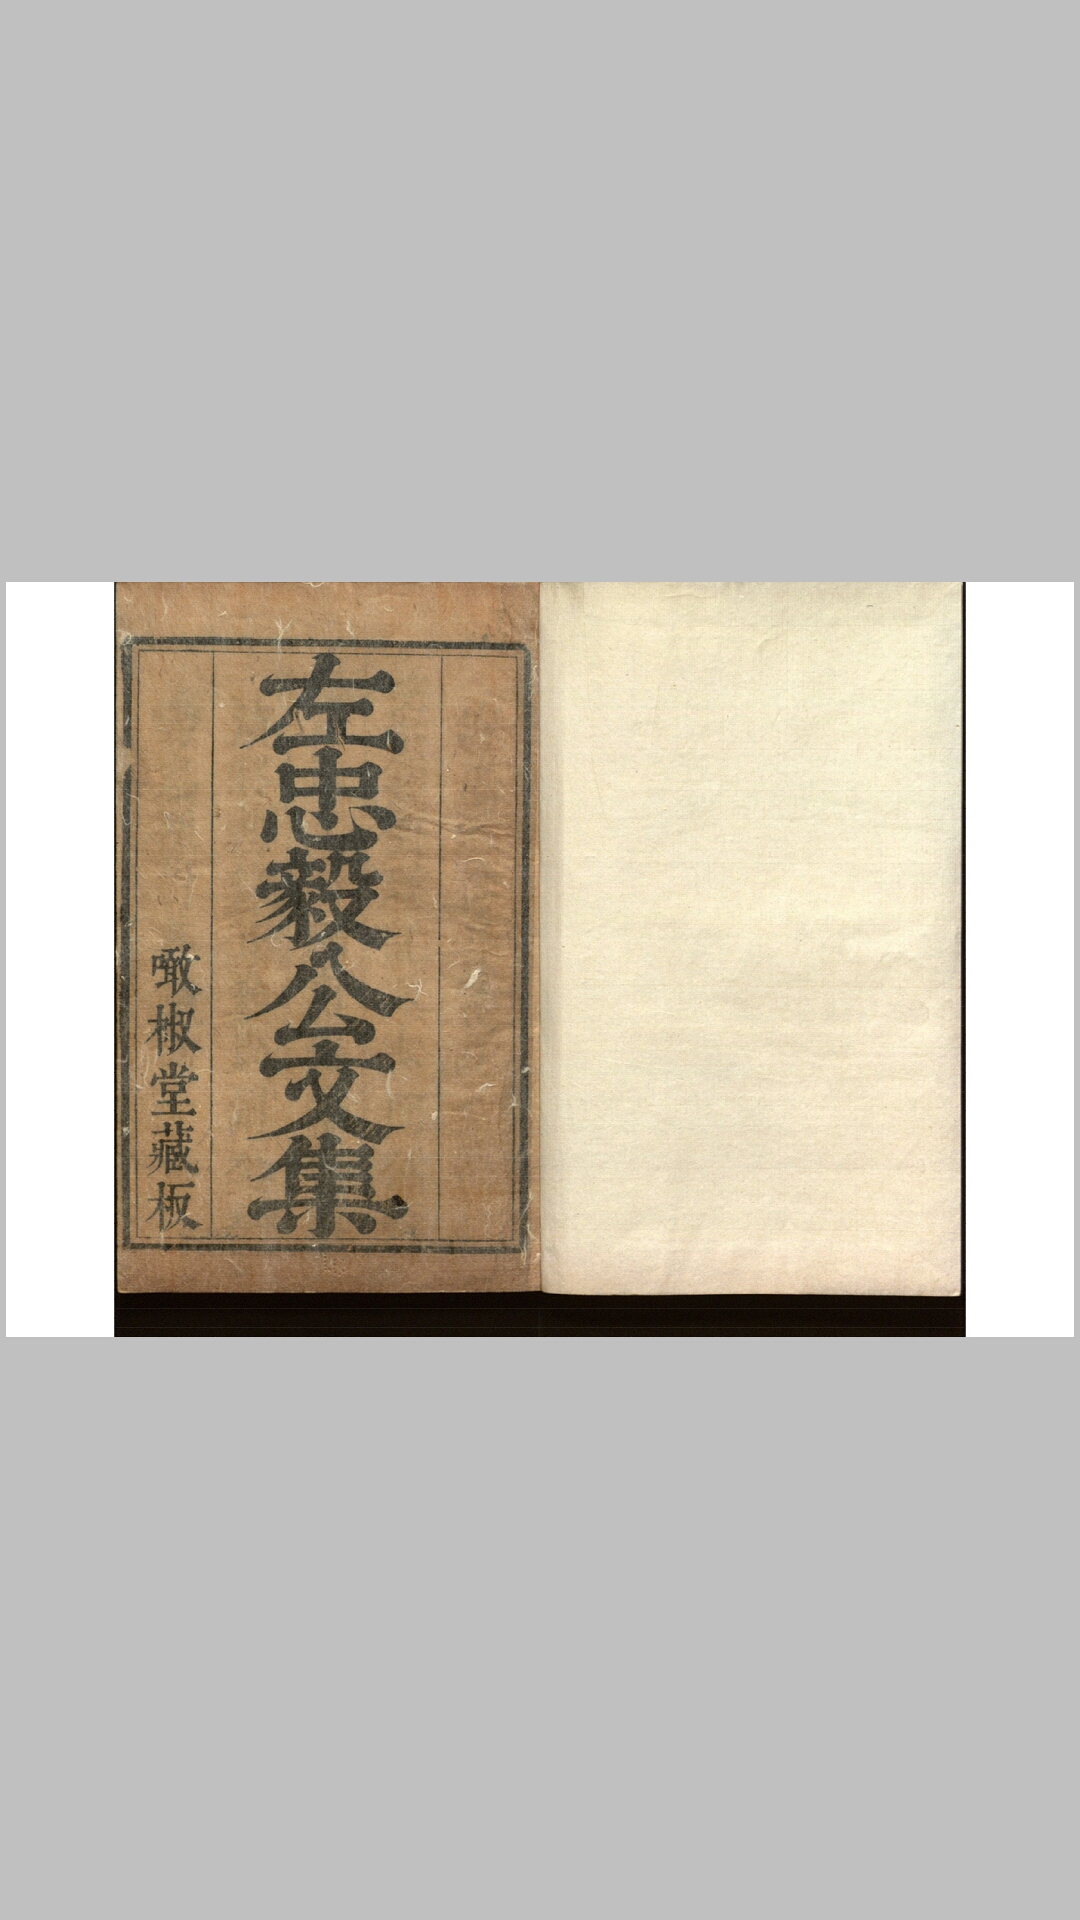 左忠毅公文集
噉椒堂藏板